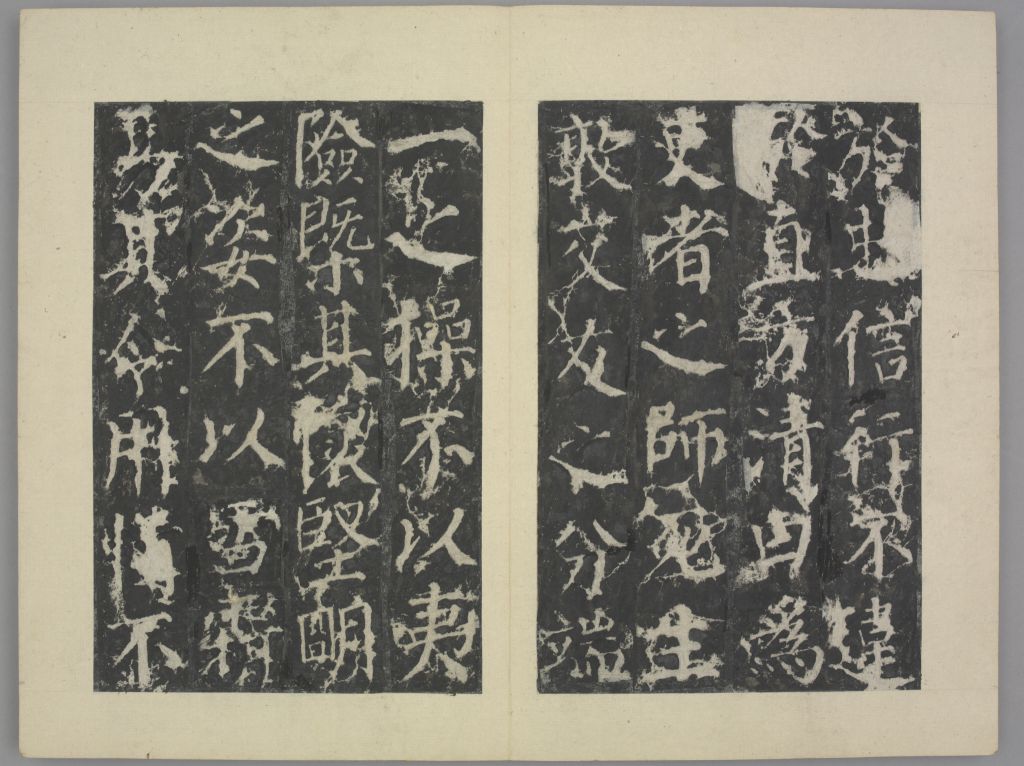 於忠信行不違
於直方清白為
吏者之師死生
敦交友之分端
一之操不以夷
險槩其懷堅明
之姿不以雪霜
易其令用情不